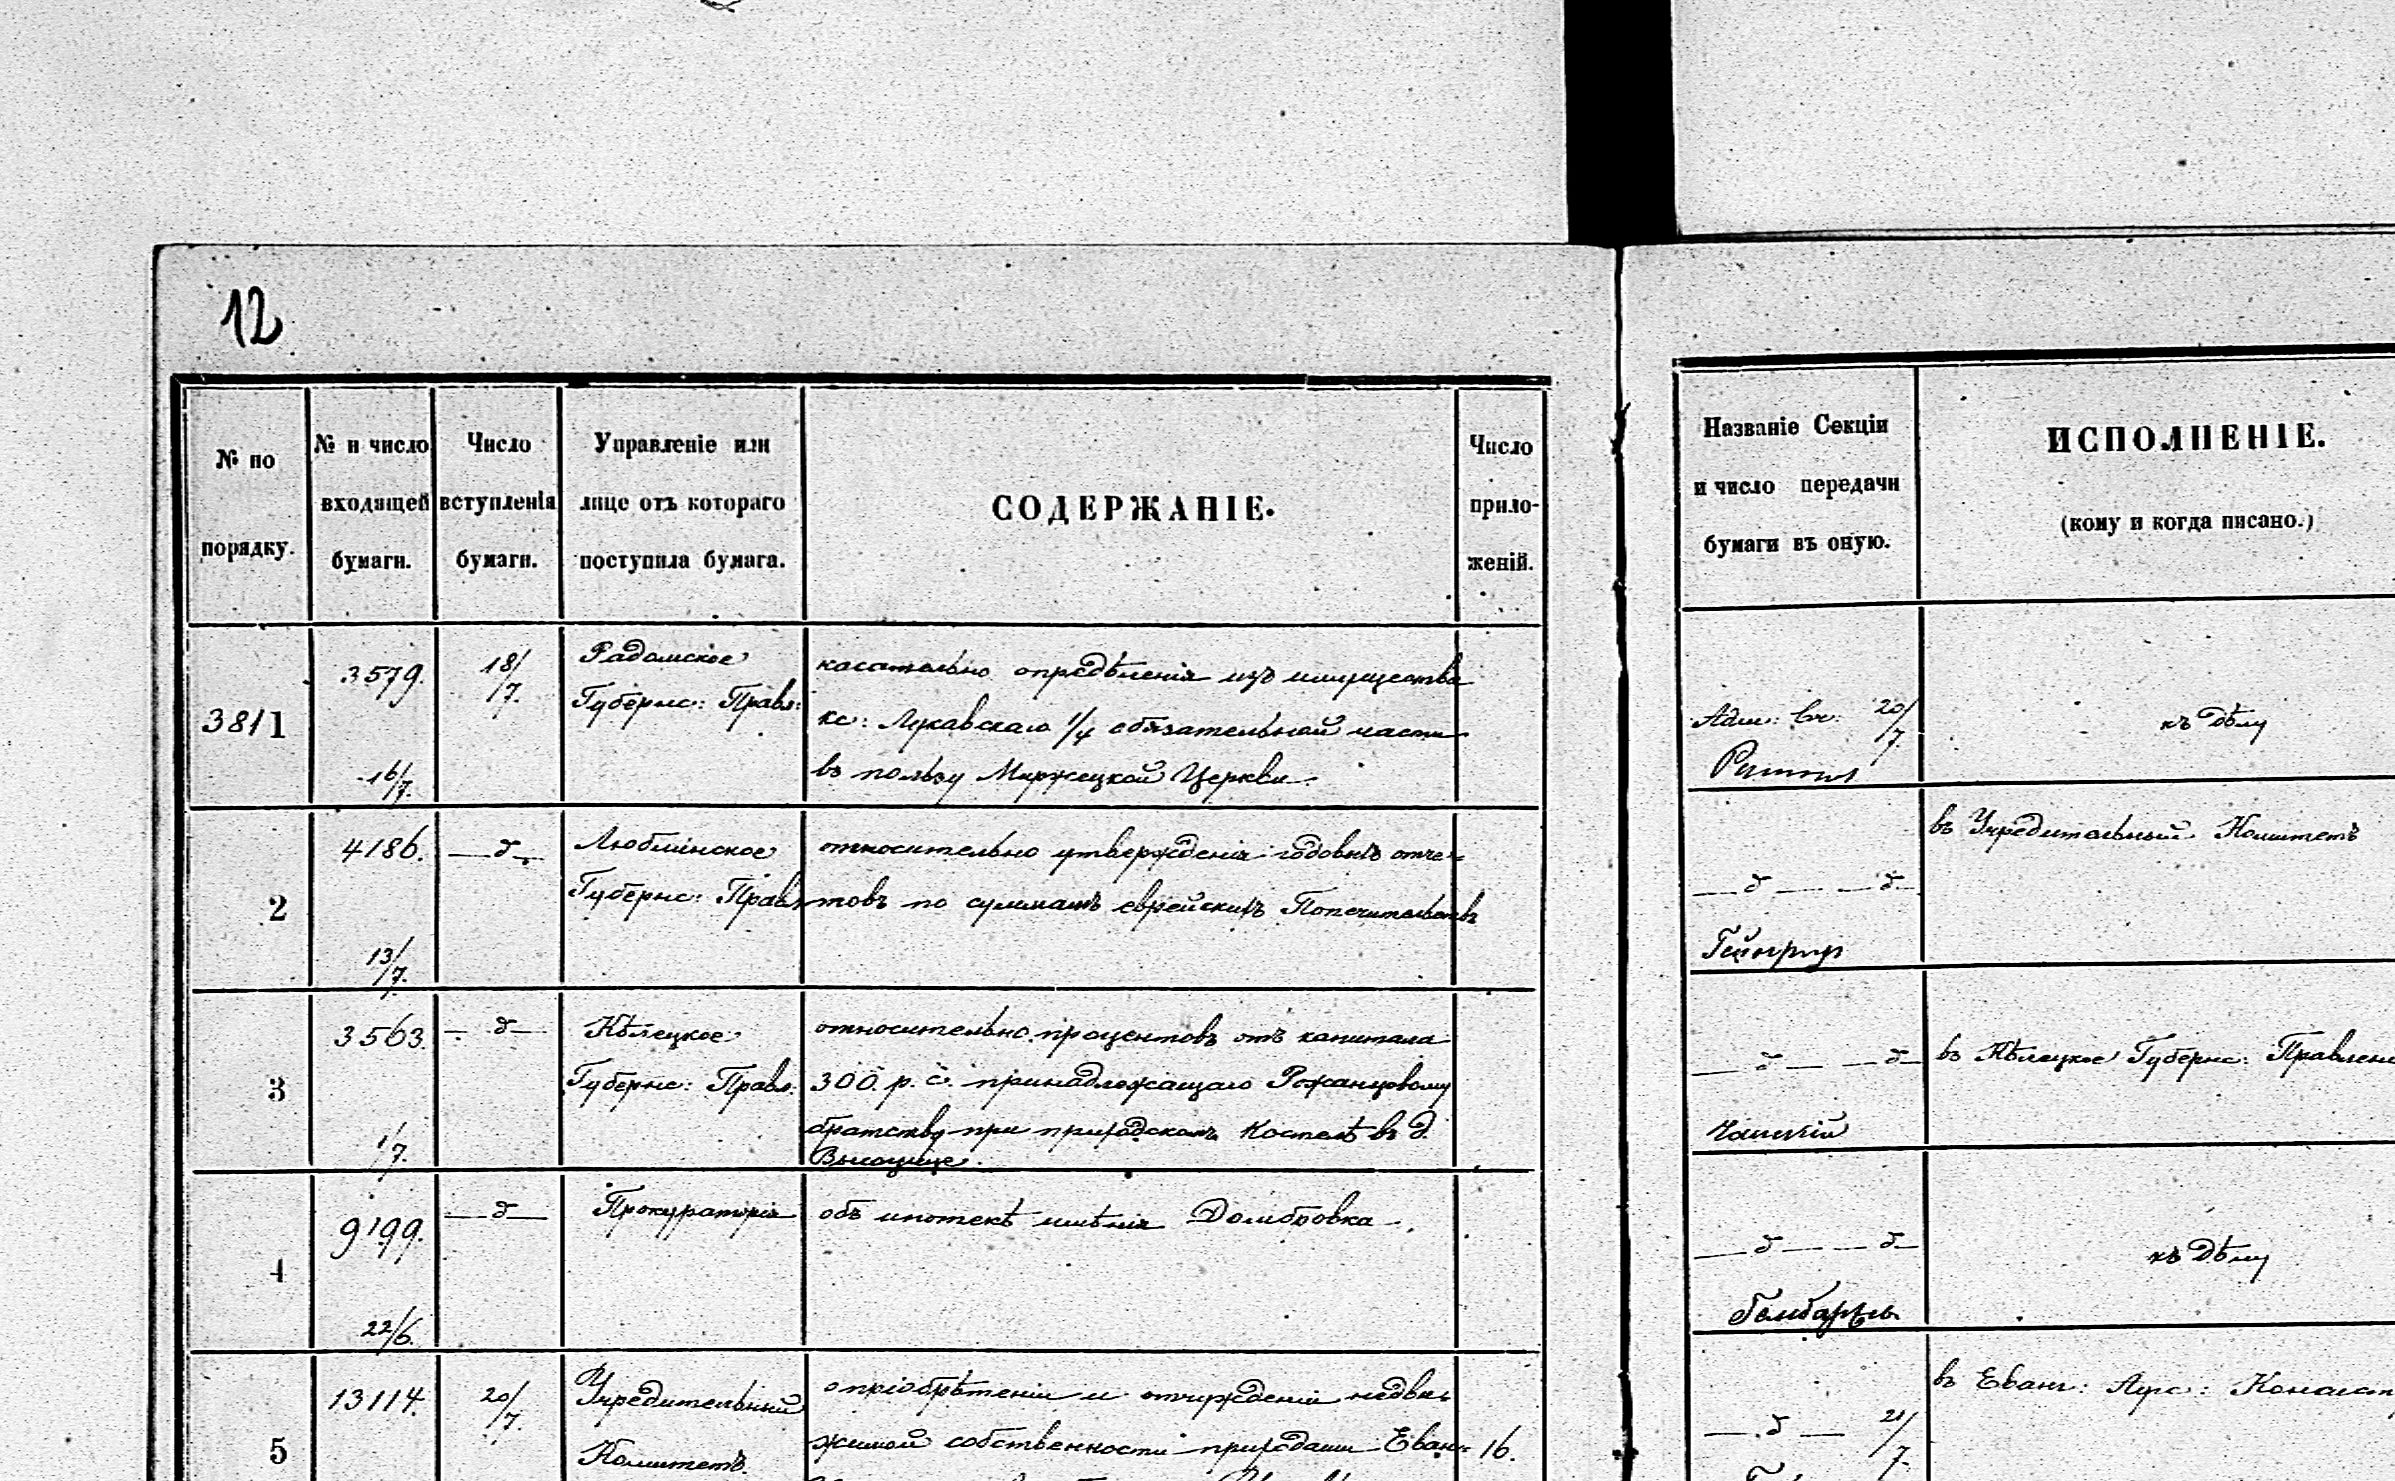 12
№ по
порядку.
№ и число
входящей
бумаги.
Число
вступленія
бумаги.
Управленіе или
лице отъ котораго
поступила бумага.
СОДЕРЖАНІЕ.
Число
прило-
женій.
Названіе Секціи
и число передачи
бумаги въ оную.
ИСПОЛНЕНІЕ.
(кому и когда писано.)
3811
3579.
16/7.
18/7.
Радомское
Губернс: Правл:
касательно опредѣленія изъ имущества
кс: Лукавскаго 1/4 обязательной части
въ пользу Миржецкой Церкви.
Адм: 20/7.
къ дѣлу
2
4186.
13/7.
—д—
Люблинское
Губернс: Правл:
относительно утвержденія годовыхъ отче-
товъ по суммамъ еврейскихъ Попечительствъ
—д— —д—
въ Учредительный Комитетъ
3
3563.
1/7.
—д—
Кѣлецкое
Губернс: Правл:
относительно процентовъ отъ капитала
300 р. с. принадлежащаго Рожанцовому
братству при приходскомъ Костелѣ въ д.
—д— —д—
въ Кѣлецкое Губернс: Правлен
4
9199.
22/6.
—д—
Прокураторія
объ ипотекѣ имѣнія Домбровка.
—д— —д—
къ дѣлу
5
13114.
20/7.
Учредительный
Комитетъ.
о пріобрѣтеніи и отчужденіи недви-
жимой собственности приходами Еван-
16.
—д— 21/7.
въ Еванг: Аугс: Консист